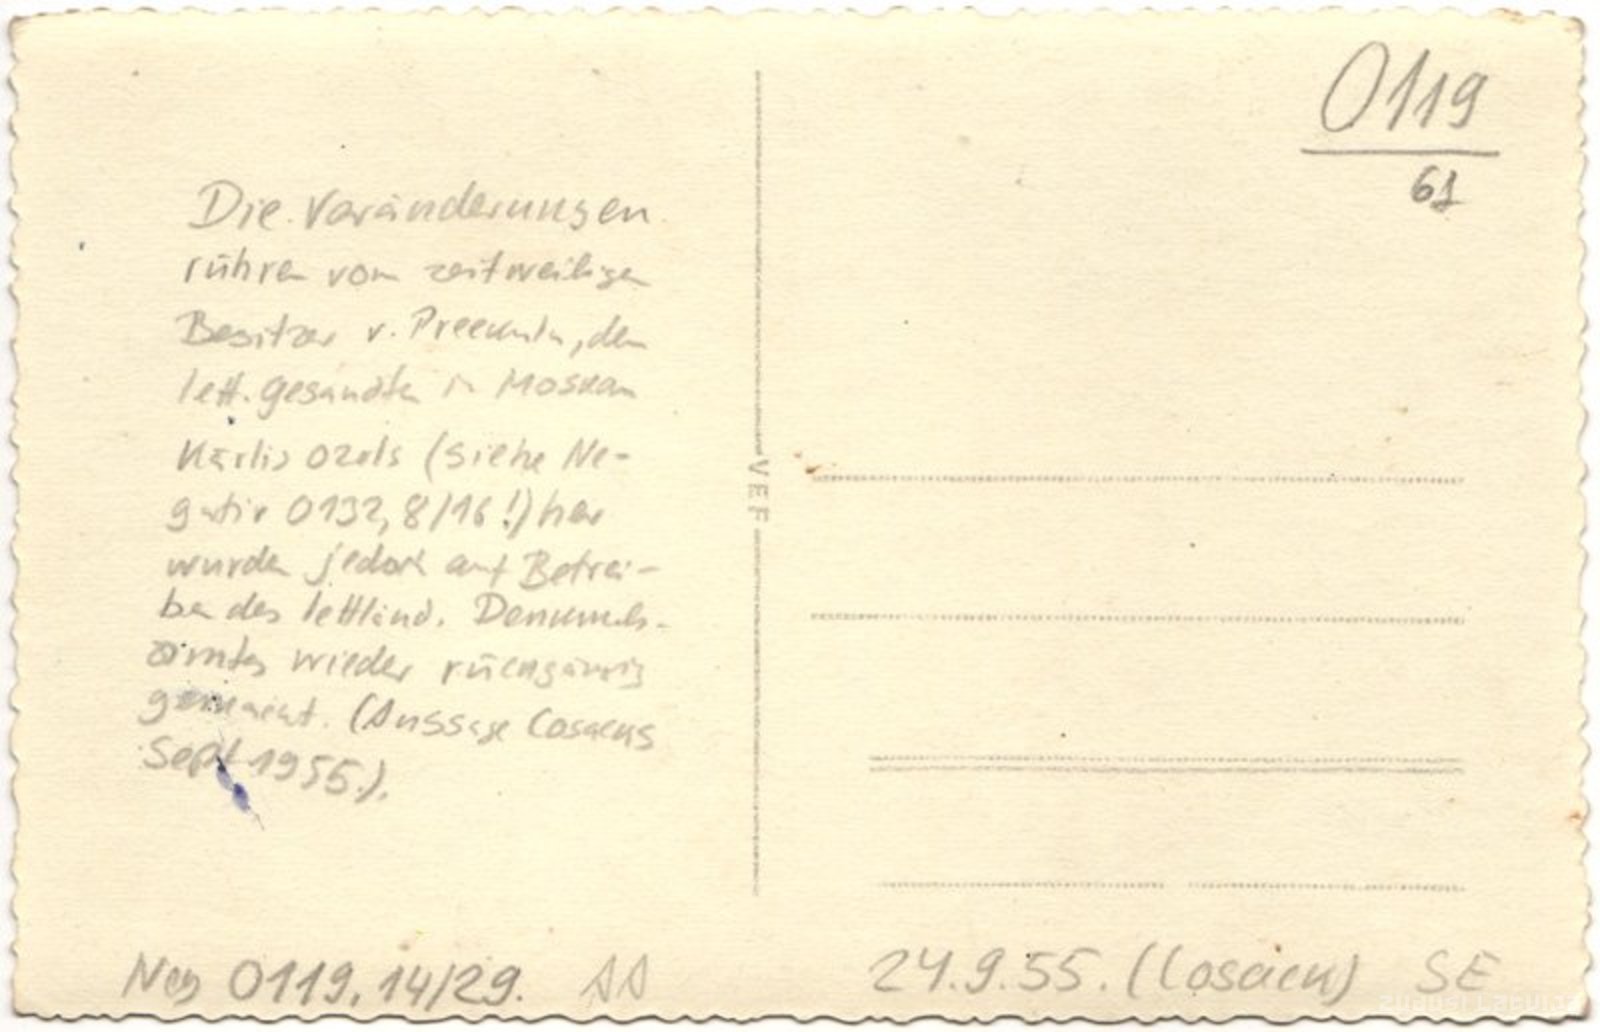 0119
61
Die Veränderungen
rühren vom zeitweiligen
Besitzer v. Preekuln, dem
lett. Gesandten in Moskau
Kārlis Ozols (siehe Ne-
gativ 0132, 8/16!) her
wurden jedoch auf Betrei-
ben des lettländ. Denkmals-
amtes wieder rückgängig
gemacht. (Aussage Cosacks
Sept 1955.).
VEF
Neg 0119, 14/29. AA
24.9.55. (Cosack) SE